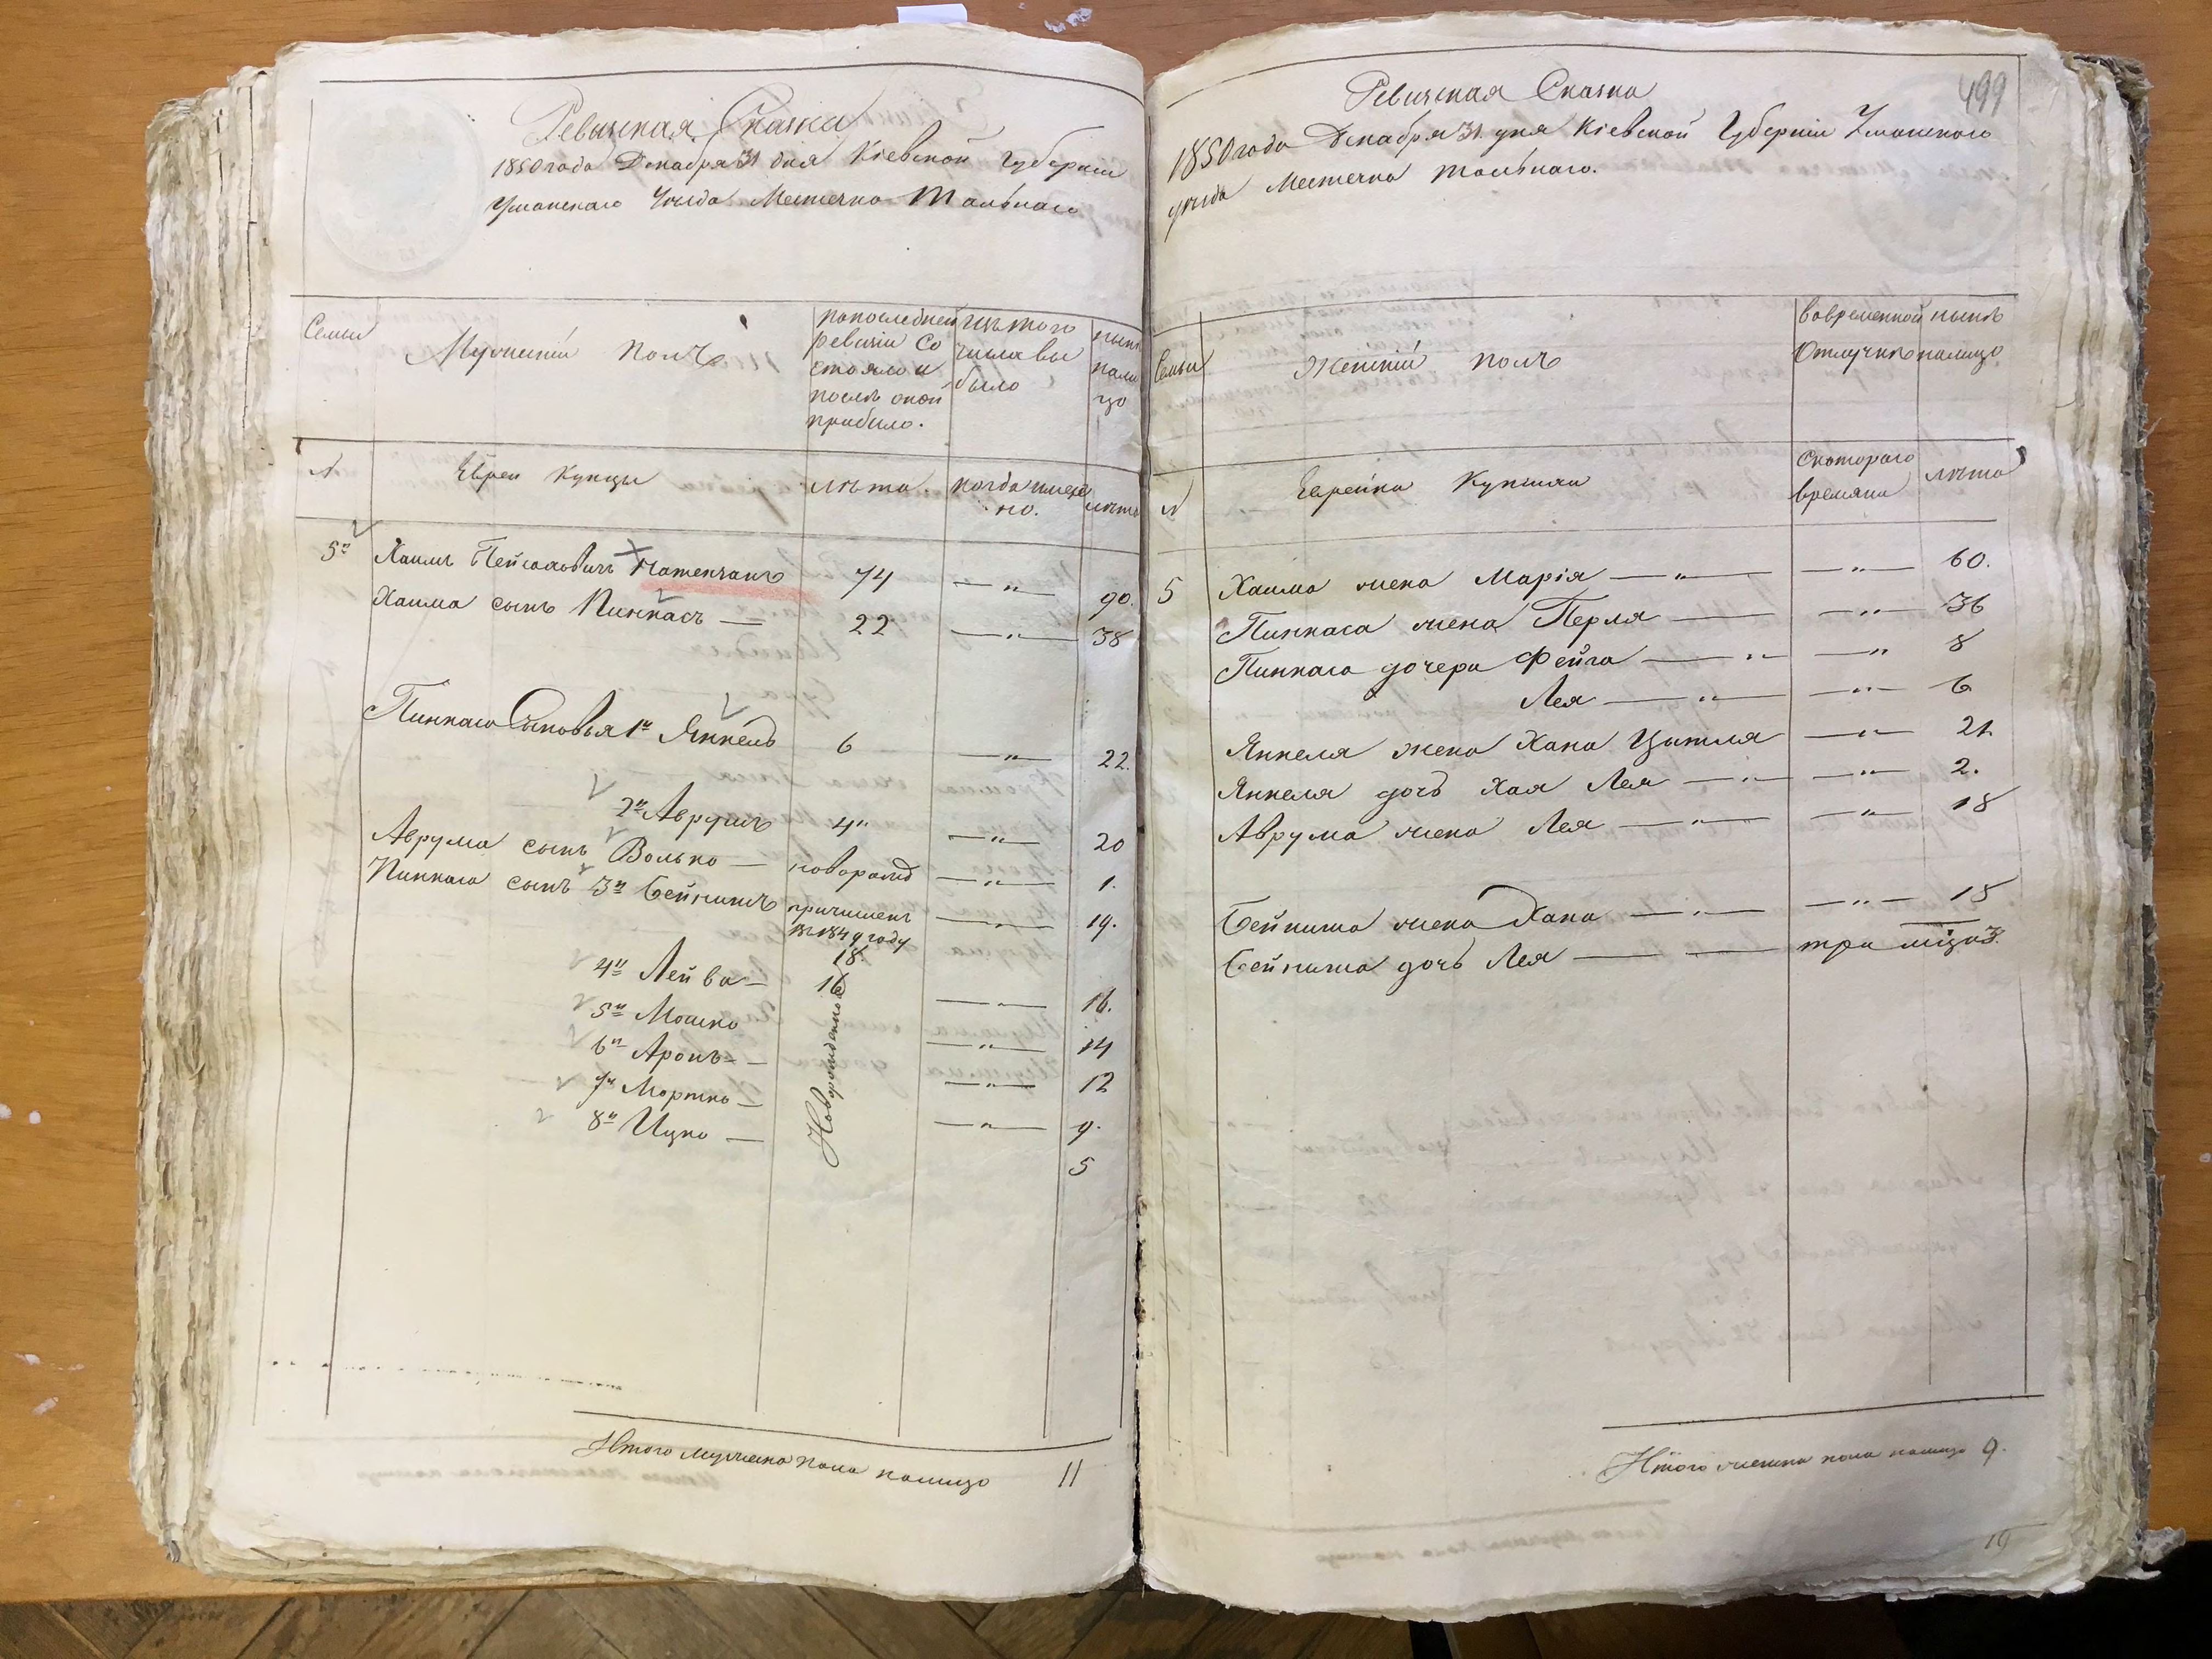 Ревизская Сказка
1850 года Декабря 31 дня Кіевской Губерніи
Уманскаго Уезда Местечка Тальнаго
Семьи
Мужескій полъ
По последней
ревизіи со
стояло и
после оной
прибыло.
Изъ того
числа вы
было
ныне
нали
цо
№
Евреи Купцы
лета.
когда имен
но.
лета
5й Хаимъ Пейсаховичъ 74 — „ — 90.
Хаима сынъ Пинкасъ — 22 — „ — 38
Пинкаса Сыновья 1й Янкель 6 — „ — 22.
2й Аврумъ 4 „ — „ — 20
Аврума сынъ Волько — новорожд — „ — 1.
Пинкаса сынъ 3й Бейнишъ причислен — „ — 19.
въ 1849 году
18
4й Лейба — 16 — „ — 16.
5й Мошко — „ — 14
6й Аронъ — — „ — 12
7й Мортко — — „ — 9.
8й Ицко — 5
Новорожденные
Итого мужеска пола налицо 11
499
Ревизская Сказка
1850 года Декабря 31 дня Кіевской Губерніи Уманскаго
уезда Местечка Тальнаго.
Семьи
Женскій полъ
Во временной
отлучке
ныне
налицо
№
Еврейки Купчихи
Съ котораго
времяни
лета
5 Хаима жена Марія — „ — — „ — 60.
Пинкаса жена Перля — — „ — 36
Пинкаса дочери Фейга — „ — — „ 8
Лея — „ — — „ — 6
Янкеля жена Хана Цытля — „ — 21
Янкеля дочь Хая Лея — „ — — „ — 2.
Аврума жена Лея — „ — — „ — 18
Бейниша жена Хана — „ — — „ — 18
Бейниша дочь Лея — — три месяца
Итого женска пола налицо 9.